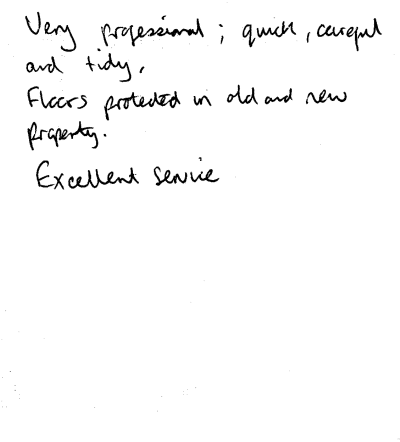 Very professional ; quick , careful
and tidy,
Floors protected in old and new
property.
Excellent Service